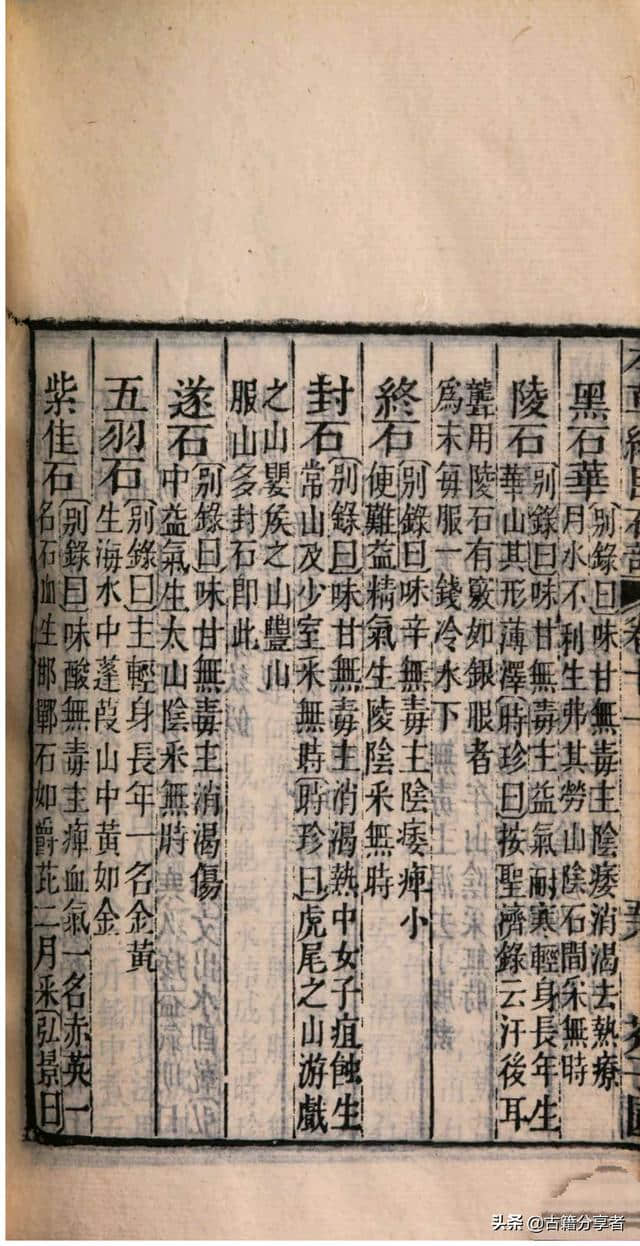 本草綱目石部 卷十一
黑石華 別錄曰味甘無毒主陰痿消渴去熱療
月水不利生弗其勞山陰石間采無時
陵石 別錄曰味甘無毒主益氣耐寒輕身長年生
華山其形薄澤時珍曰按聖濟錄云汗後耳
聾用陵石有竅如銀眼者
爲末每服一錢冷水下
終石 別錄曰味辛無毒主陰痿痺小
便難益精氣生陵陰采無時
封石 別錄曰味甘無毒主消渴熱中女子疽蝕生
常山及少室采無時時珍曰虎尾之山游戲
之山嬰侯之山豐山
服山多封石卽此
遂石 別錄曰味甘無毒主消渴傷
中益氣生太山陰采無時
五羽石 別錄曰主輕身長年一名金黃
生海水中蓬葭山中黃如金
紫佳石 別錄曰味酸無毒主痺血氣一名赤英一
名石血生邯鄲石如爵茈二月采弘景曰
头条 @古籍分享者